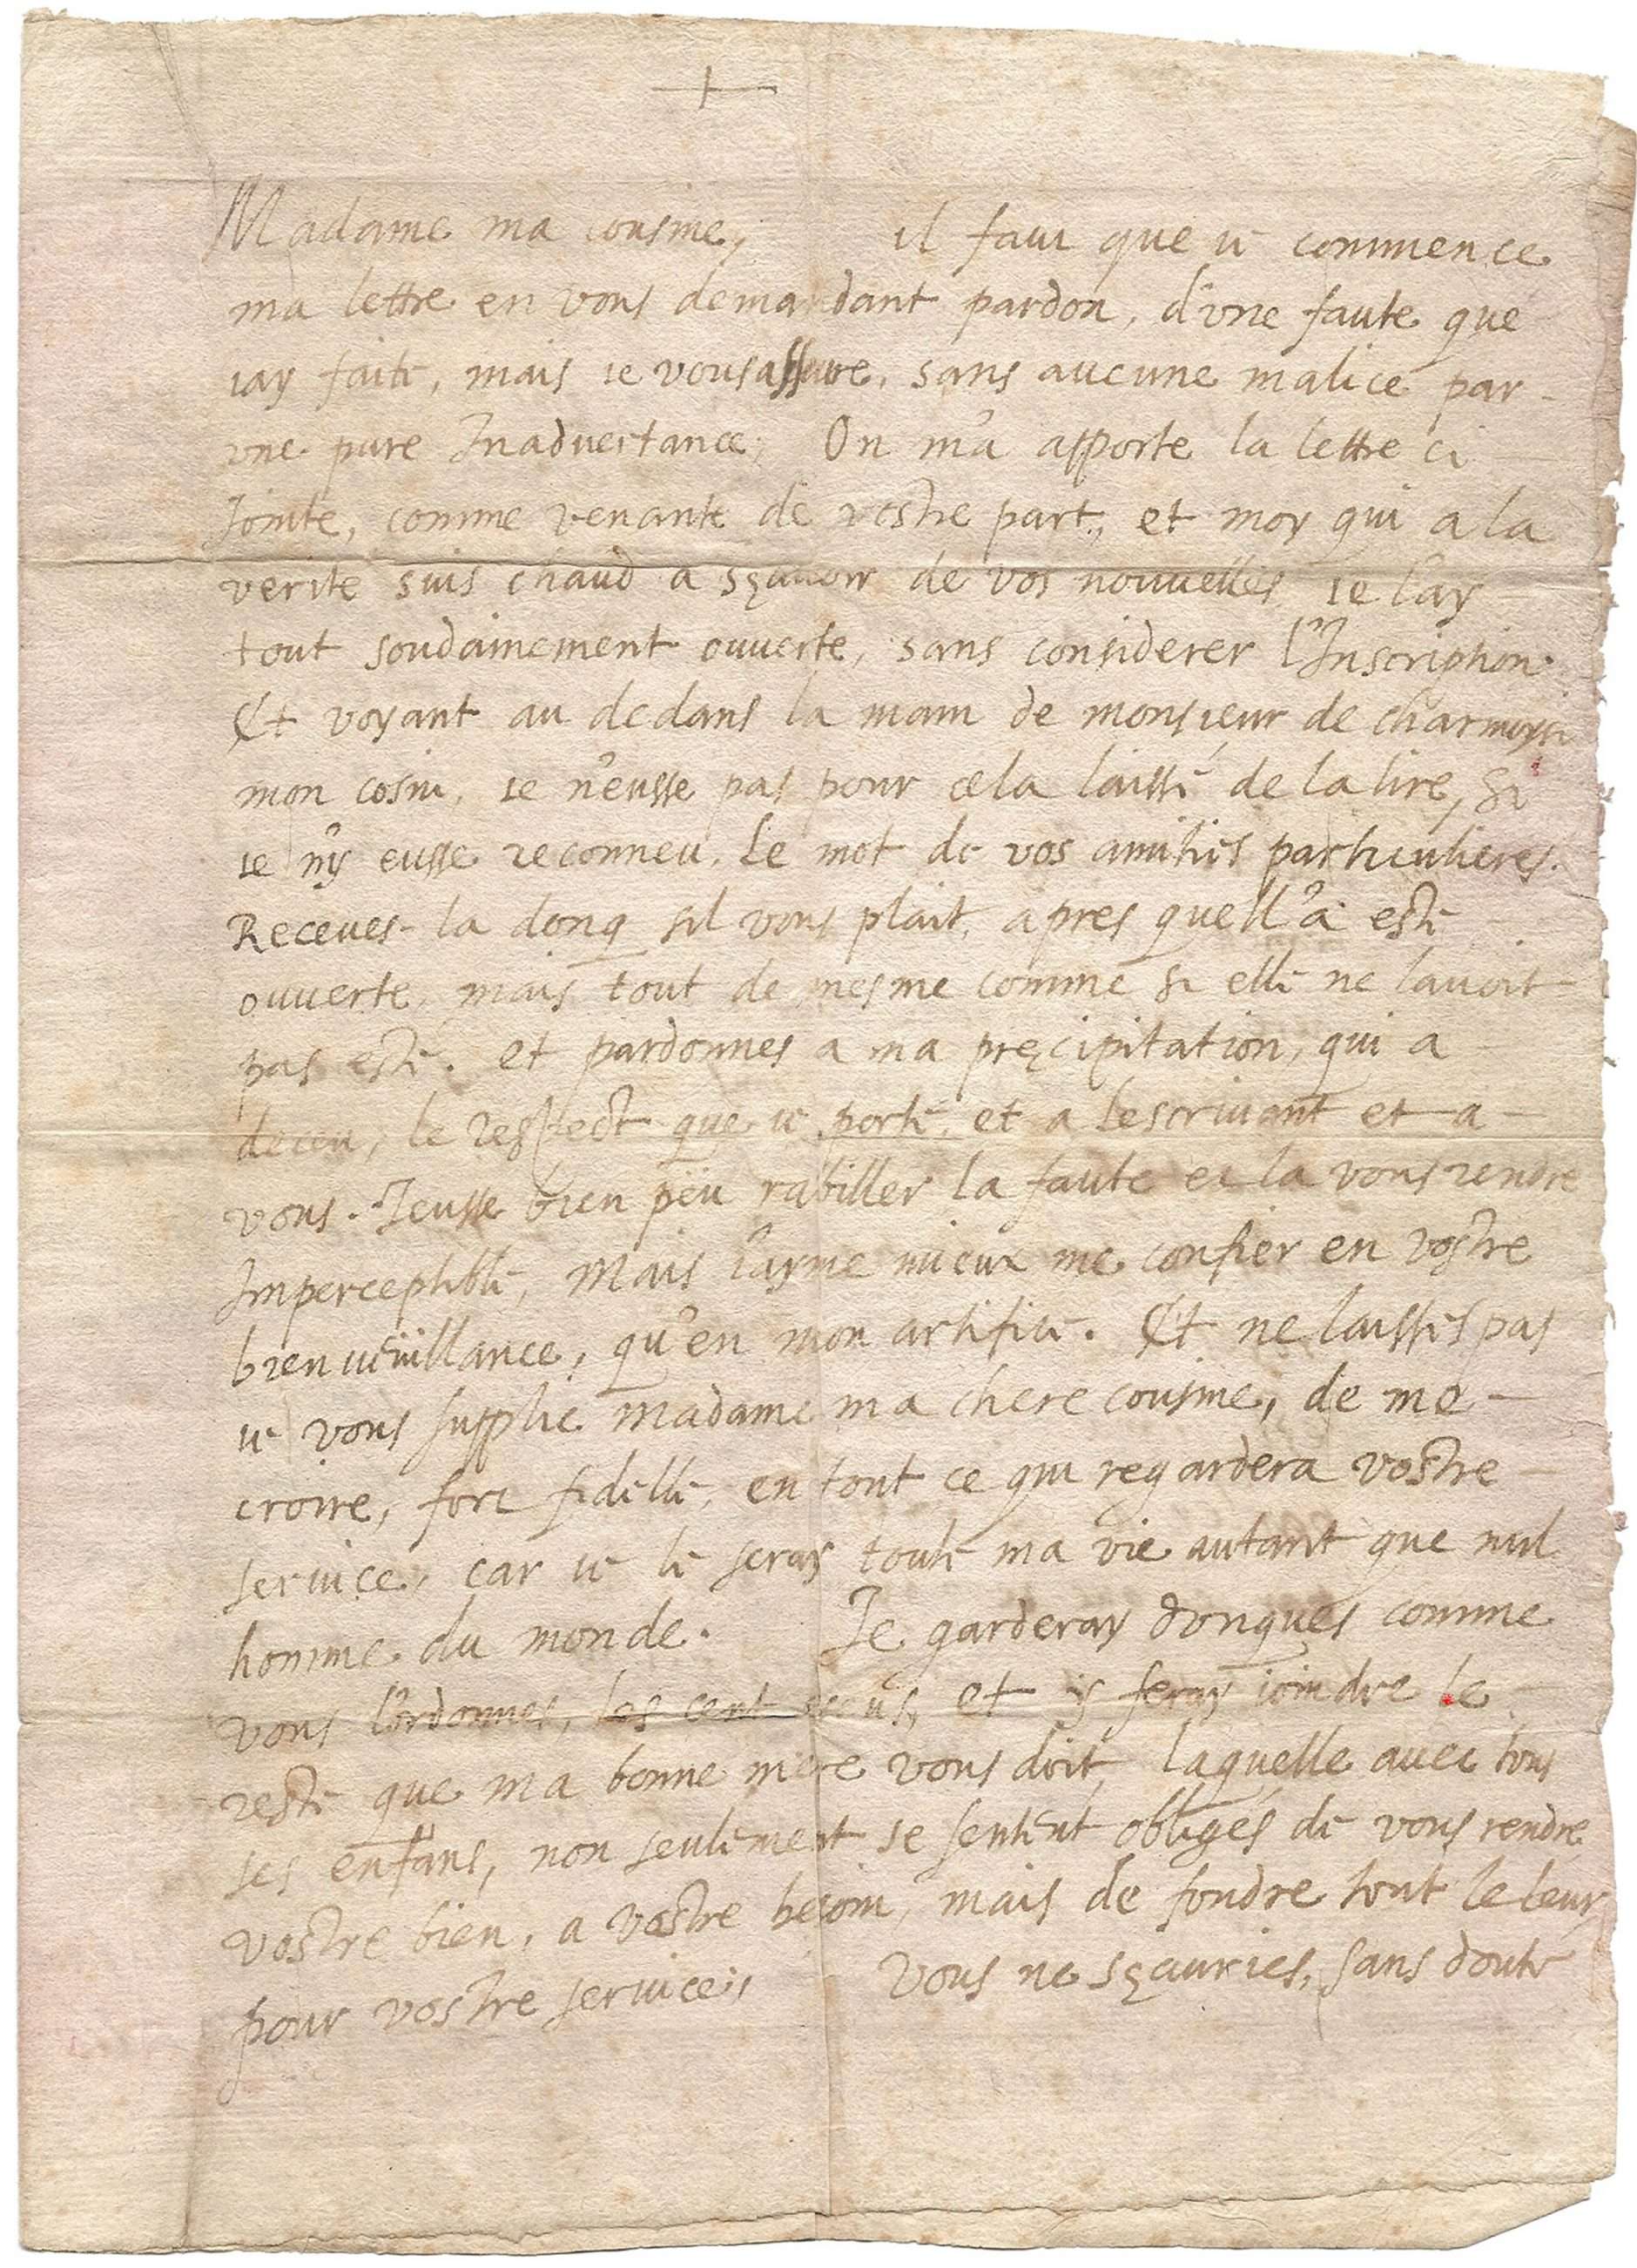 Madame ma cousine, il faut que ie commence
ma lettre en vous demandant pardon, d'vne faute que
i'ay faite, mais ie vous asseure, sans aucune malice par
vne pure Inaduertance, On m'a apporte la lettre ci
Jointe, comme venante de vostre part, et moy qui a la
verite suis chaud a sçauoir de vos nouuelles ie l'ay
tout soudainement ouuerte, sans considerer l'Inscription
Et voyant au dedans la main de monsieur de charmoysi
mon cosin, ie n'eusse pas pour cela laissé de la lire, si
ie n'y eusse reconneu. Le mot de vos amitiés particulieres.
Receues la donq sil vous plait, apres quell'a esté
ouuerte, mais tout de mesme comme si elle ne lauoit
pas esté. et pardonnes a ma precipitation, qui a
deceu, le respect que ie porte, et a l'escriuant et a
vous. J'eusse bien peu rabiller la faute et la vous rendre
Imperceptible, Mais i'ayme mieux me confier en vostre
bienueüillance, qu'en mon artifice. Et ne laissés pas
ie vous supplie madame ma chere cousine, de me
croire, fort fidelle, en tout ce qui regardera vostre
seruice, car ie le seray toute ma vie autant que nul
homme du monde. Je garderay donques comme
vous l'ordonnes, les cent escus, et y feray ioindre le
reste que ma bonne mere vous doit, laquelle auec tous
ses enfans, non seulement se sentent obligés de vous rendre
vostre bien, a vostre besoin, mais de fondre tout le leur
pour vostre seruice, Vous ne sçauries, sans doute